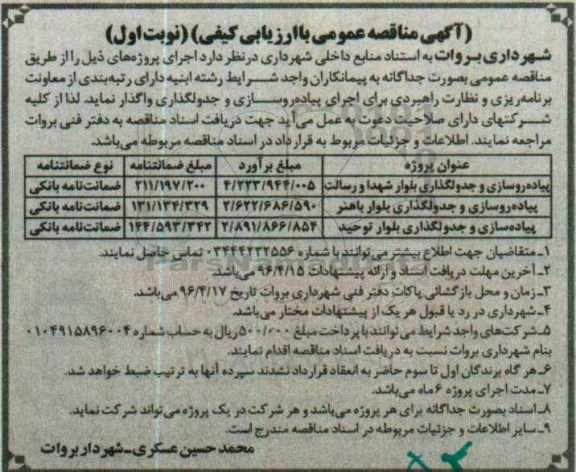 (آگهی مناقصه عمومی با ارزیابی کیفی) (نوبت اول)
شهرداری بروات به استناد منابع داخلی شهرداری درنظر دارد اجرای پروژه‌های ذیل را از طریق
مناقصه عمومی بصورت جداگانه به پیمانکاران واجد شرایط رشته ابنیه دارای رتبه‌بندی از معاونت
برنامه‌ریزی و نظارت راهبردی برای اجرای پیاده‌روسازی و جدولگذاری واگذار نماید. لذا از کلیه
شرکتهای دارای صلاحیت دعوت به عمل می‌آید جهت دریافت اسناد مناقصه به دفتر فنی بروات
مراجعه نمایند. اطلاعات و جزئیات مربوط به قرارداد در اسناد مناقصه مربوطه می‌باشد.
عنوان پروژه مبلغ برآورد مبلغ ضمانتنامه نوع ضمانتنامه
پیاده‌روسازی و جدولگذاری بلوار شهدا و رسالت ۴/۲۲۳/۹۴۴/۰۰۵ ۲۱۱/۱۹۷/۲۰۰ ضمانت‌نامه بانکی
پیاده‌روسازی و جدولگذاری بلوار باهنر ۲/۶۲۲/۶۸۶/۵۹۰ ۱۳۱/۱۳۴/۳۲۹ ضمانت‌نامه بانکی
پیاده‌سازی و جدولگذاری بلوار توحید ۲/۸۹۱/۸۶۶/۸۵۴ ۱۴۴/۵۹۳/۳۴۲ ضمانت‌نامه بانکی
۱ـ متقاضیان جهت اطلاع بیشتر می‌توانند با شماره ۰۳۴۴۴۲۳۲۵۵۶ تماس حاصل نمایند.
۲ـ آخرین مهلت دریافت اسناد و ارائه پیشنهادات ۹۶/۴/۱۵ می‌باشد.
۳ـ زمان و محل بازگشائی پاکات دفتر فنی شهرداری بروات تاریخ ۹۶/۴/۱۷ می‌باشد.
۴ـ شهرداری در رد یا قبول هر یک از پیشنهادات مختار می‌باشد.
۵ـ شرکت‌های واجد شرایط می توانند با پرداخت مبلغ ۵۰۰/۰۰۰ ریال به حساب شماره ۰۱۰۴۹۱۵۸۹۶۰۰۴
بنام شهرداری بروات نسبت به دریافت اسناد مناقصه اقدام نمایند.
۶ـ هر گاه برندگان اول تا سوم حاضر به انعقاد قرارداد نشدند سپرده آنها به ترتیب ضبط خواهد شد.
۷ـ مدت اجرای پروژه ۶ ماه می‌باشد.
۸ـ اسناد بصورت جداگانه برای هر پروژه می‌باشد و هر شرکت در یک پروژه می‌تواند شرکت نماید.
۹ـ سایر اطلاعات و جزئیات مربوطه در اسناد مناقصه مندرج است.
محمد حسین عسکری ـ شهردار بروات